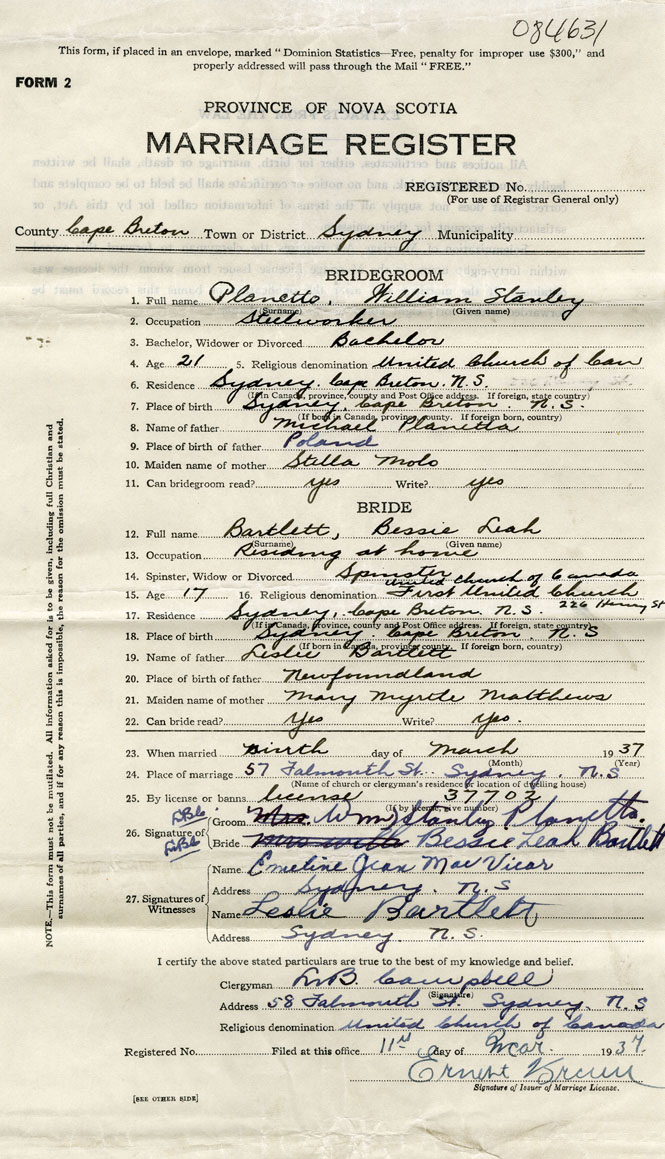 084631
This form, if placed in an envelope, marked "Dominion Statistics—Free, penalty for improper use $300," and
properly addressed will pass through the Mail "FREE."
FORM 2
PROVINCE OF NOVA SCOTIA
MARRIAGE REGISTER
REGISTERED No.
(For use of Registrar General only)
County Cape Breton Town or District Sydney Municipality
BRIDEGROOM
1. Full name Planetto, William Stanley
(Surname) (Given name)
2. Occupation Steelworker
3. Bachelor, Widower or Divorced Bachelor
4. Age 21 5. Religious denomination United Church of Can
6. Residence Sydney. Cape Breton. N.S.
(If in Canada, province, county and Post Office address. If foreign, state country)
7. Place of birth Sydney. Cape Breton N.S.
(If born in Canada, province, county. If foreign born, country)
8. Name of father Michael Planetta
9. Place of birth of father Poland
10. Maiden name of mother Stella Molo
11. Can bridegroom read? yes Write? yes
BRIDE
12. Full name Bartlett, Bessie Leah
(Surname) (Given name)
13. Occupation Residing at home
14. Spinster, Widow or Divorced Spinster
United Church of Canada
15. Age 17 16. Religious denomination First United Church
17. Residence Sydney. Cape Breton. N.S. 226 Henry St
(If in Canada, province, county and Post Office address. If foreign, state country)
18. Place of birth Sydney. Cape Breton. N.S
(If born in Canada, province, county. If foreign born, country)
19. Name of father Leslie Bartlett
20. Place of birth of father Newfoundland
21. Maiden name of mother Mary Myrtle Matthews
22. Can bride read? Yes Write? Yes.
23. When married ninth day of March 1937
(Month) (Year)
24. Place of marriage 57 Falmouth St. Sydney. N.S
(Name of church or clergyman's residence or location of dwelling house)
25. By license or banns license 37703
(If by license, give number)
26. Signature of
Groom Mrs. Wm. Stanley Planetta.
LBC
Bride Mrs Bessie Leah Bartlett
LBC
27. Signatures of Witnesses
Name Emeline Jean MacVicar
Address Sydney. N.S
Name Leslie Bartlett
Address Sydney. N.S.
I certify the above stated particulars are true to the best of my knowledge and belief.
Clergyman L.B. Campbell
(Signature)
Address 58 Falmouth St. Sydney. N.S
Religious denomination United Church of Canada
Registered No. Filed at this office 11th day of Mar. 1937.
Ernest
Signature of Issuer of Marriage License.
[SEE OTHER SIDE]
NOTE.—This form must not be mutilated. All information asked for is to be given, including full Christian and
surnames of all parties, and if for any reason this is impossible, the reason for the omission must be stated.